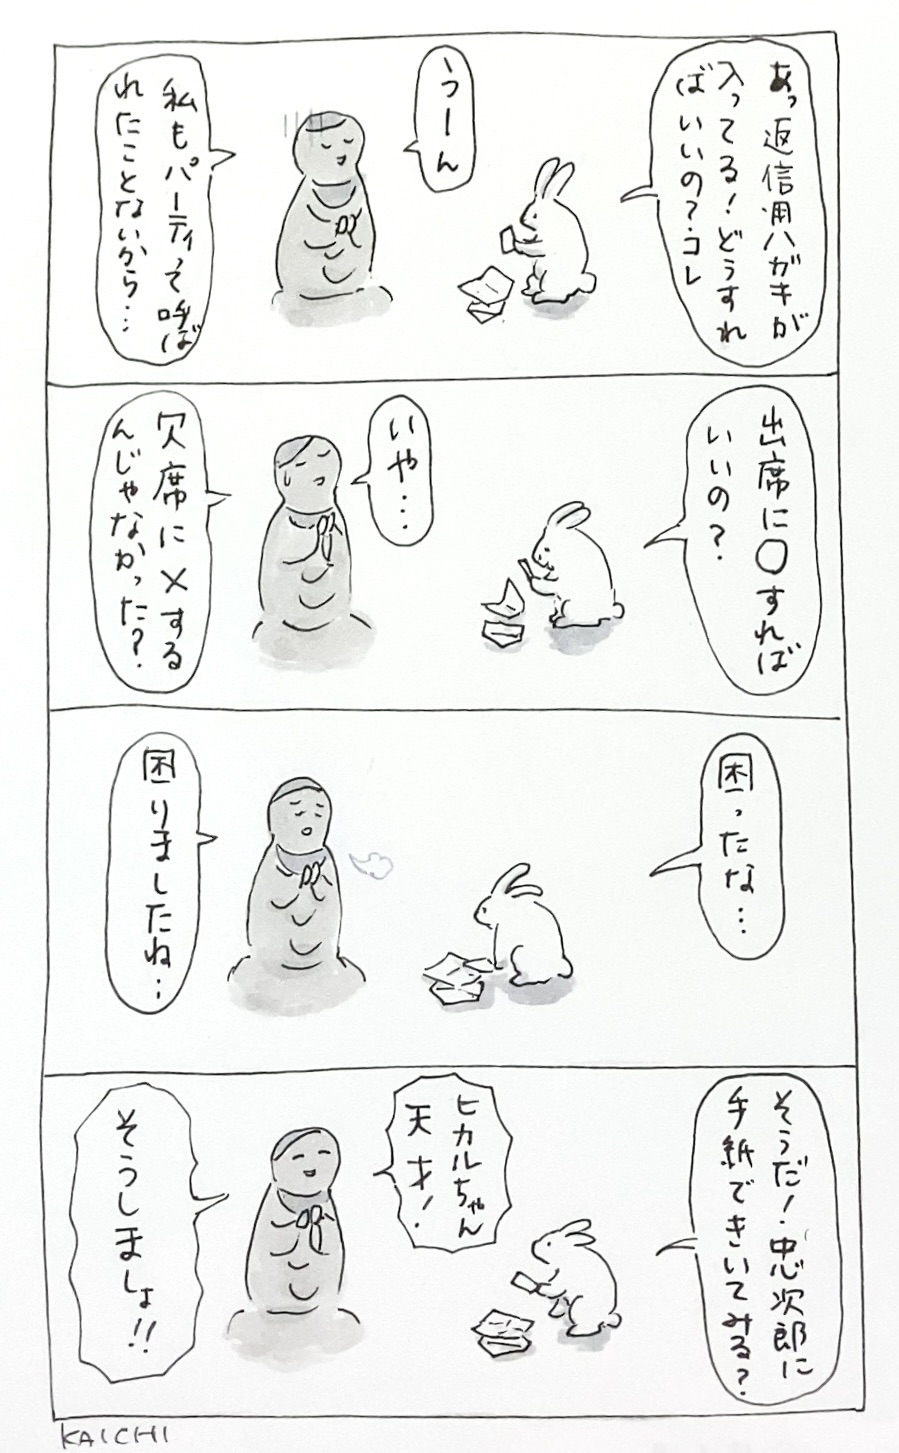 あっ返信用ハガキが
入ってる！どうすれ
ばいいの？コレ
うーん
私もパーティって呼ば
れたことないから…
出席に〇すれば
いいの？
いや…
欠席に×する
んじゃなかった？
困ったな…
困りましたね…
そうだ！忠次郎に
手紙できいてみる？
ヒカルちゃん
天才！
そうしましょ！！
KAICHI